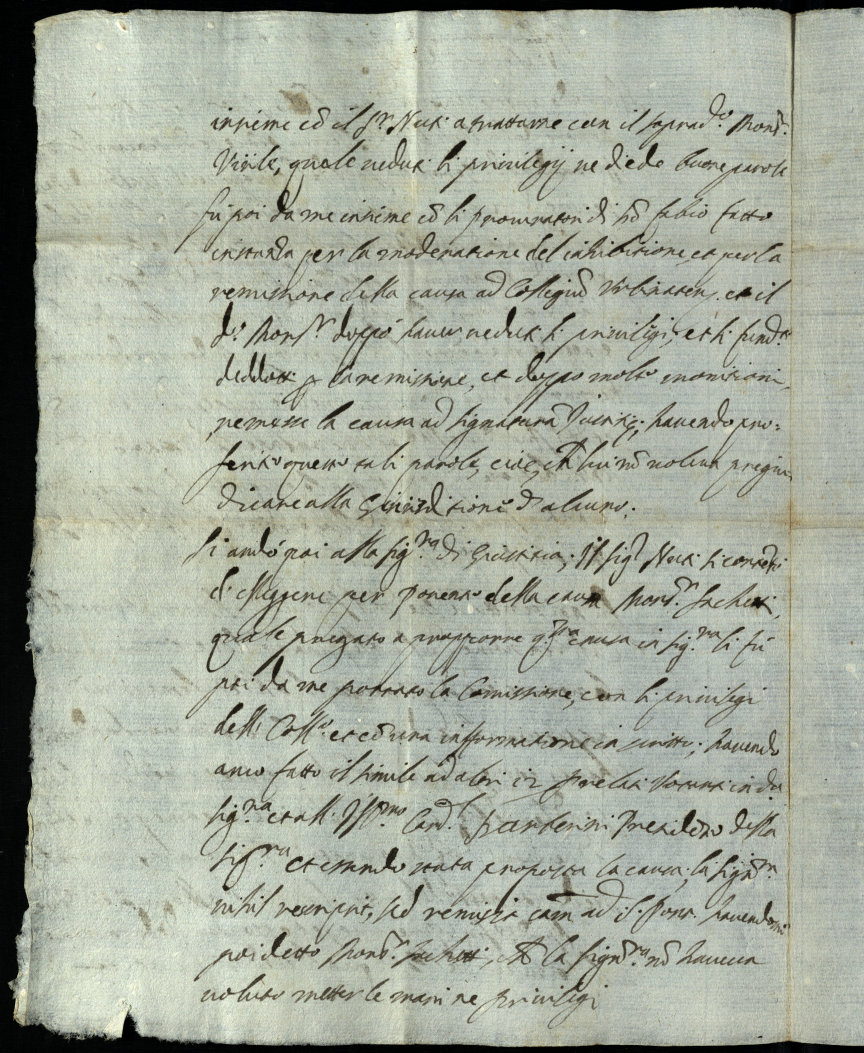 insieme cõ il Sr. Nuti a trattarne con il soprad.o Mons.r
Virile, quale veduti li privilegij ne diede buone parole
fù poi da me insieme cõ li procuratori di Fabio fatto
instanza per la moderatione del inhibitione, et per la
remissione della causa ad Collegiũ Urbinaten, et il
d.o Mons.r doppò haver veduti li privilegi, et li fund.ti
deddotti p la remissione, et doppo molte monitioni,
remesse la causa ad signaturã Iustitię, havendo pro=
ferito queste tali parole, cioè, ch lui nõ voleva pregiu
dicare alla Giurisditione d'alcuno.
Si andò poi alla sig.ra di Giustitia, Il sig.r Nuti si contentò
di elleggere per ponente della causa Mons.r Sachetti,
quale pregato a propporre q.sta causa in sig.ra li fù
poi da me portato la Comissione, con li privilegi
dell Coll.o et cõ una informatione in scritto, havendo
anco fatto il simile ad altri 12 Prelati Votanti in d.a
sig.ra et all Ill.mo Card. Barberini Presidente della
sig.ra et essendo stata proposta la causa, la Sign.ra
nihil rescripsit, sed remissa cam ad havendomi
poi detto Mons.r Sachetti, ch la Sign.ra nõ haveva
voluto metter le mani ne privilegi